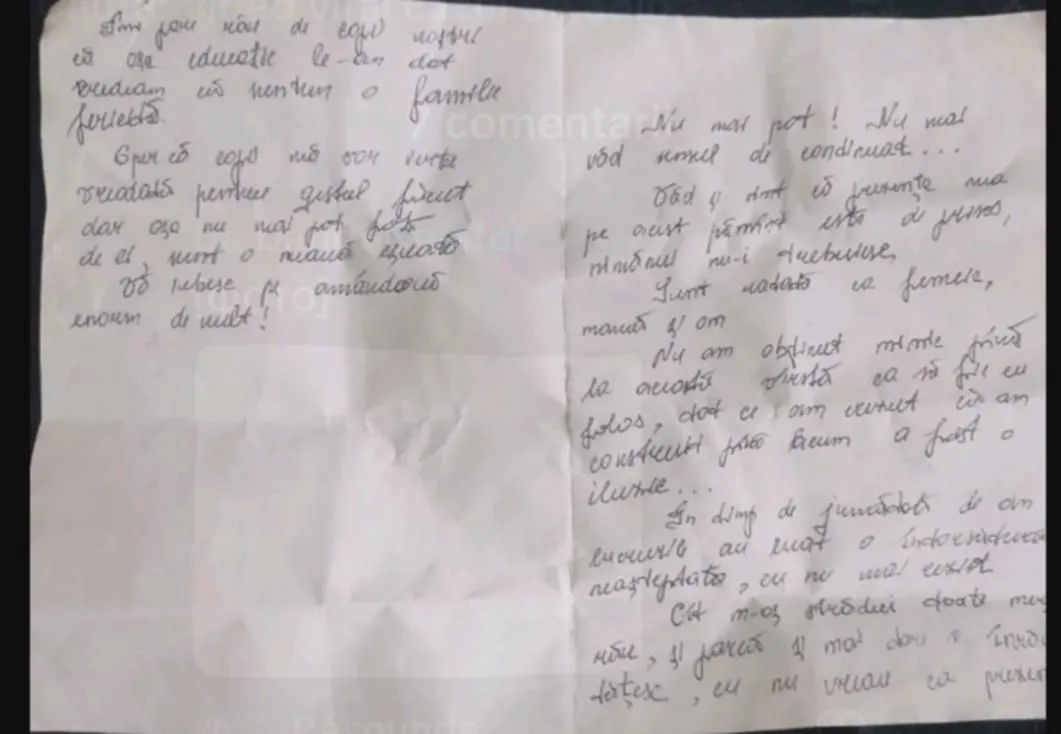 Îmi pare rău de copiii noștri
că așa educație le-am dat
credeam că suntem o familie
fericită.
7 comentarii
Sper că copiii mă vor ierta
vreodată pentru gestul făcut
dar așa nu mai pot
de el, sunt o mamă eșuată
Vă iubesc pe amândouă
enorm de mult!
Nu mai pot! Nu mai
văd sensul de continuat...
Văd și simt că prezența mea
pe acest pămînt este de prisos,
nimănui nu-i trebuiesc,
Sunt ca femeie,
mamă și om
Nu am obținut nimic pînă
la această vîrstă ca să fie cu
folos, tot ce am crezut că am
construit pînă acum a fost o
iluzie...
În timp de jumătate de an
lucrurile au luat o
neașteptată, eu nu mai rezist
Cît m-aș strădui toate merg
rău, și parcă și mai tare se înrău
tățesc, eu nu vreau ca